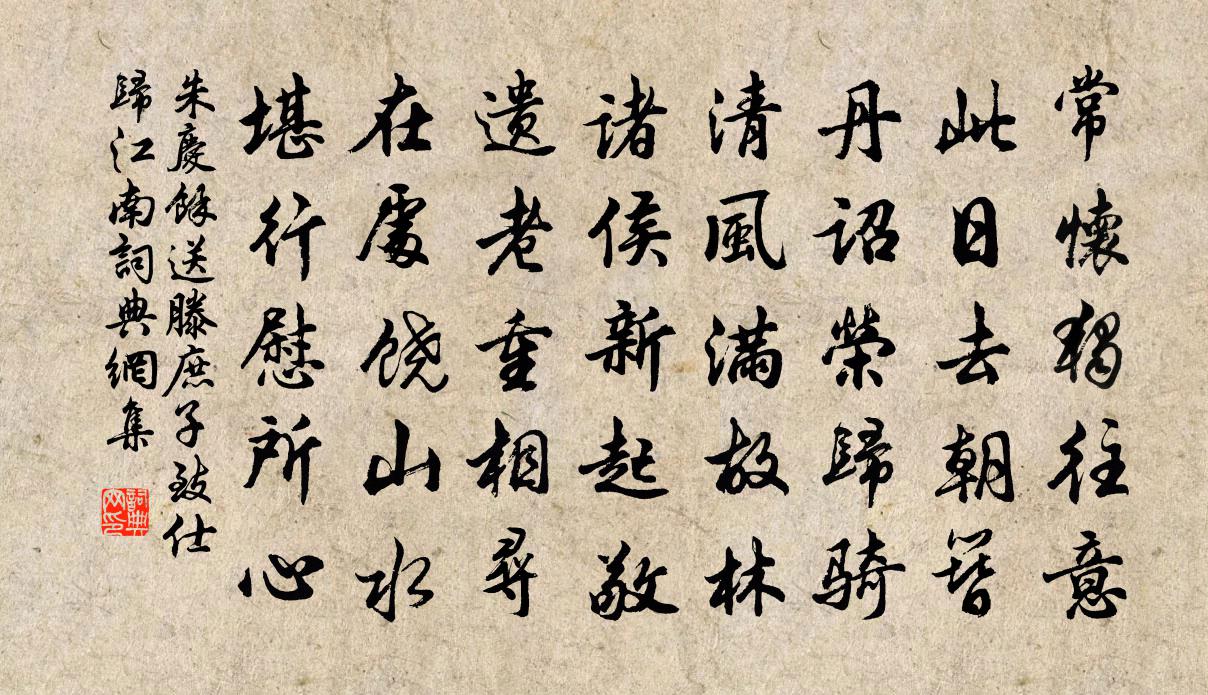 常懷獨往意
此日去朝簪
丹诏榮歸骑
清風满故林
诸侯新起敬
遗老重相尋
在處饶山水
堪行慰所心
朱慶餘送滕庶子致仕
歸江南詞典網集
詞典网印